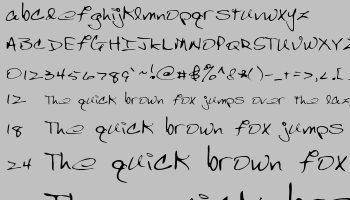 abcdefghijklmnopqrstuvwxyz
ABCDEFGHIJKLMNOPQRSTUVWXYZ
0123456789`~!@#$%^&*()-_+=>,<.
12 The quick brown fox jumps over the laz
18 The quick brown fox jumps
24 The quick brown fox